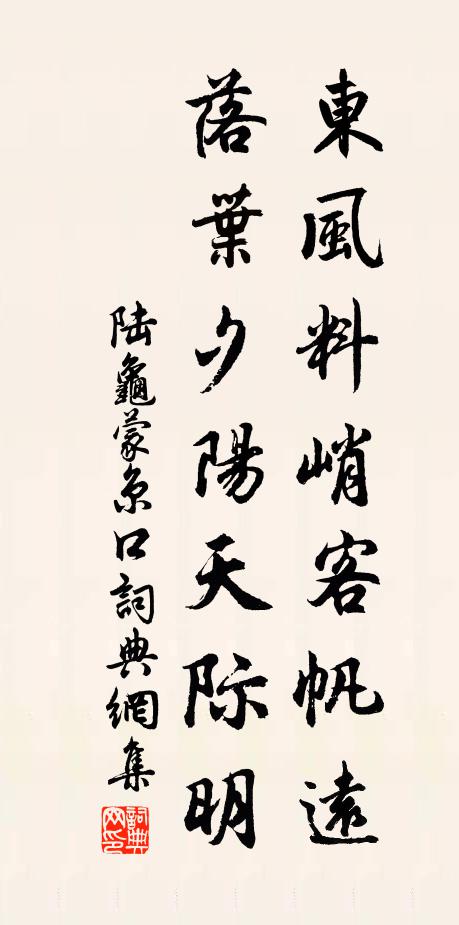 東風料峭客帆遠
落葉夕陽天际明
陆龜蒙京口詞典網集
詞典网印